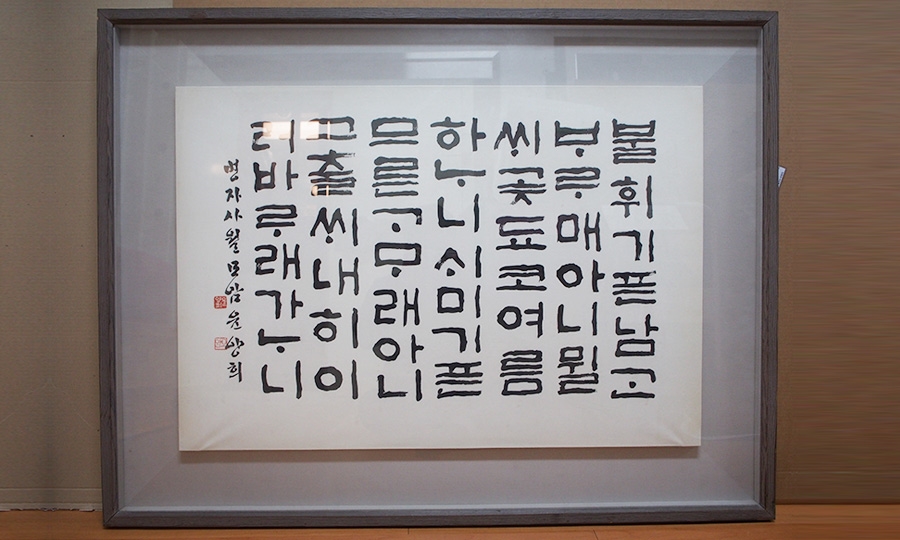 불휘기픈남ᄀᆞᆫ
ᄇᆞᄅᆞ매아니뮐
ᄊᆡ곶됴코여름
하ᄂᆞ니ᄉᆡ미기픈
므른ᄀᆞᄆᆞ래아니
그츨ᄊᆡ내히이
러바ᄅᆞ래가ᄂᆞ니
병자사월 모암 윤양희